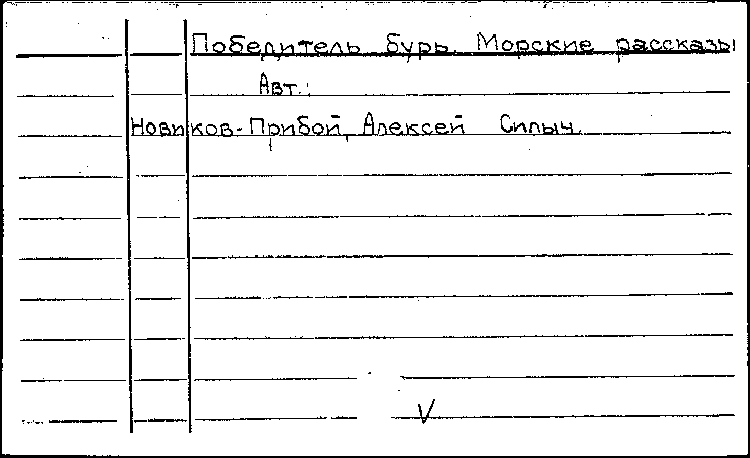 Победитель бурь. Морские рассказы
Авт.:
Новиков-Прибой, Алексей Силыч.
V